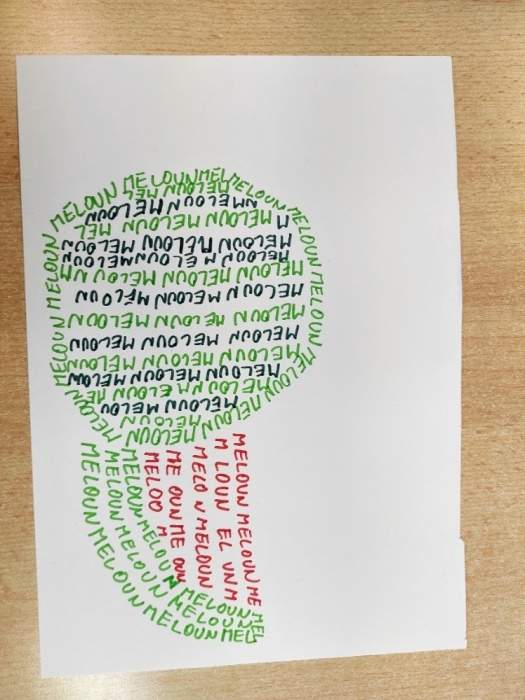 MELOUN MELOUN MELOUN ME LOUNMELMELOUN MELOUN MELOUN MELOUN MELOUN MELOUN MELOUN
MELOUN MEL
NMELOUN MELOUN
MELOUN MELOUN MEL
M
MELOUN MELOUN MELOUN
MELOUN MELOUN MELOUN
MELOUN MELOUN MELOUN M
MELOUN MELOUN MELOUN
MELOUN ME LOUN MELOUN
MELOUN MELOUN MELOUN
MELOUN MELOUN MELOUN
MELOUN MELOUN MELOU
MELOUN MELOUN ME
MELOUN MELOU
MELOUN MELOUN ME
M LOUN EL UNM
MELO N MELOUN
ME OUNME OUN
MELOO M
MELOUNMELOUN MELOUNM
MELOUN MELOUN MELOUN
MELOUNMELOUNMELOUNMEL